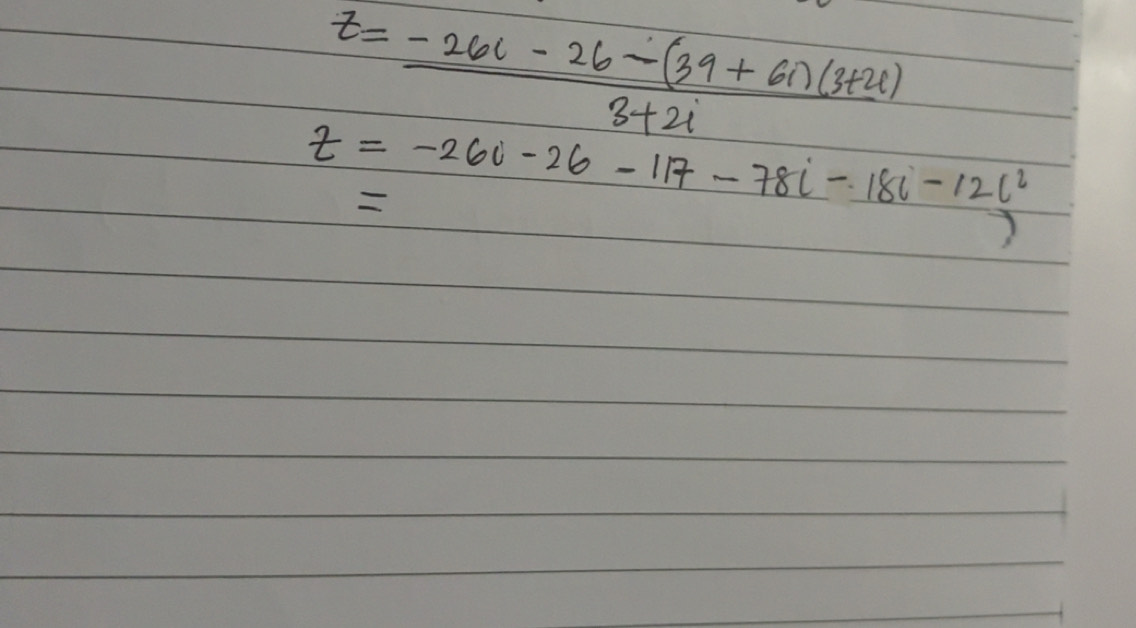 z = -26i - 26 - (39 + 6i)(3+2i)
3+2i
z = -26i - 26 - 117 - 78i - 18i - 12i²
=